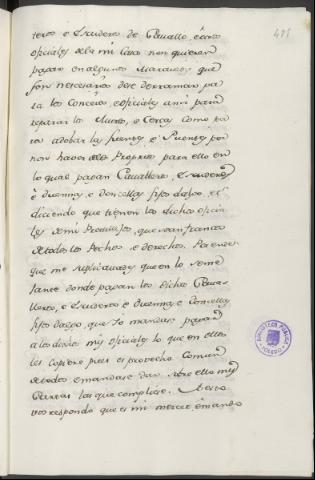 415
teros e Escuderos de Cavallo, e otros
oficiales dela mi Casa non quieren
pagar en algunos Maravedis que
son necesarios de se derramar pa
ra los Concejos, e oficiales ansi para
reparar los Muros, e Cercas como pa
ra adobar las fuentes, e Puentes por
non haver de los Proprios para ello en
lo qual pagan Cavalleros, e Escuderos
e Duennas, e Doncellas fijos dalgo, e
diciendo que tienen los dichos oficia
les de mi Previllejos, que sean francos
de todos los Pechos e derechos. Por ende
que me suplicavades que en lo seme
jante donde pagan los dichos Cava
lleros, e Escuderos e Duennas, e Doncellas
fijos dalgo, que Yo mandase pagar
a los dichos mis oficiales lo que en ellos
les copiere pues es provecho Comun
de todos e mandase dar sobre ello mis
Cartas las que compliese. A esto
vos respondo que es mi merced, e mando
BIBLIOTECA PUBLICA
TOLEDO